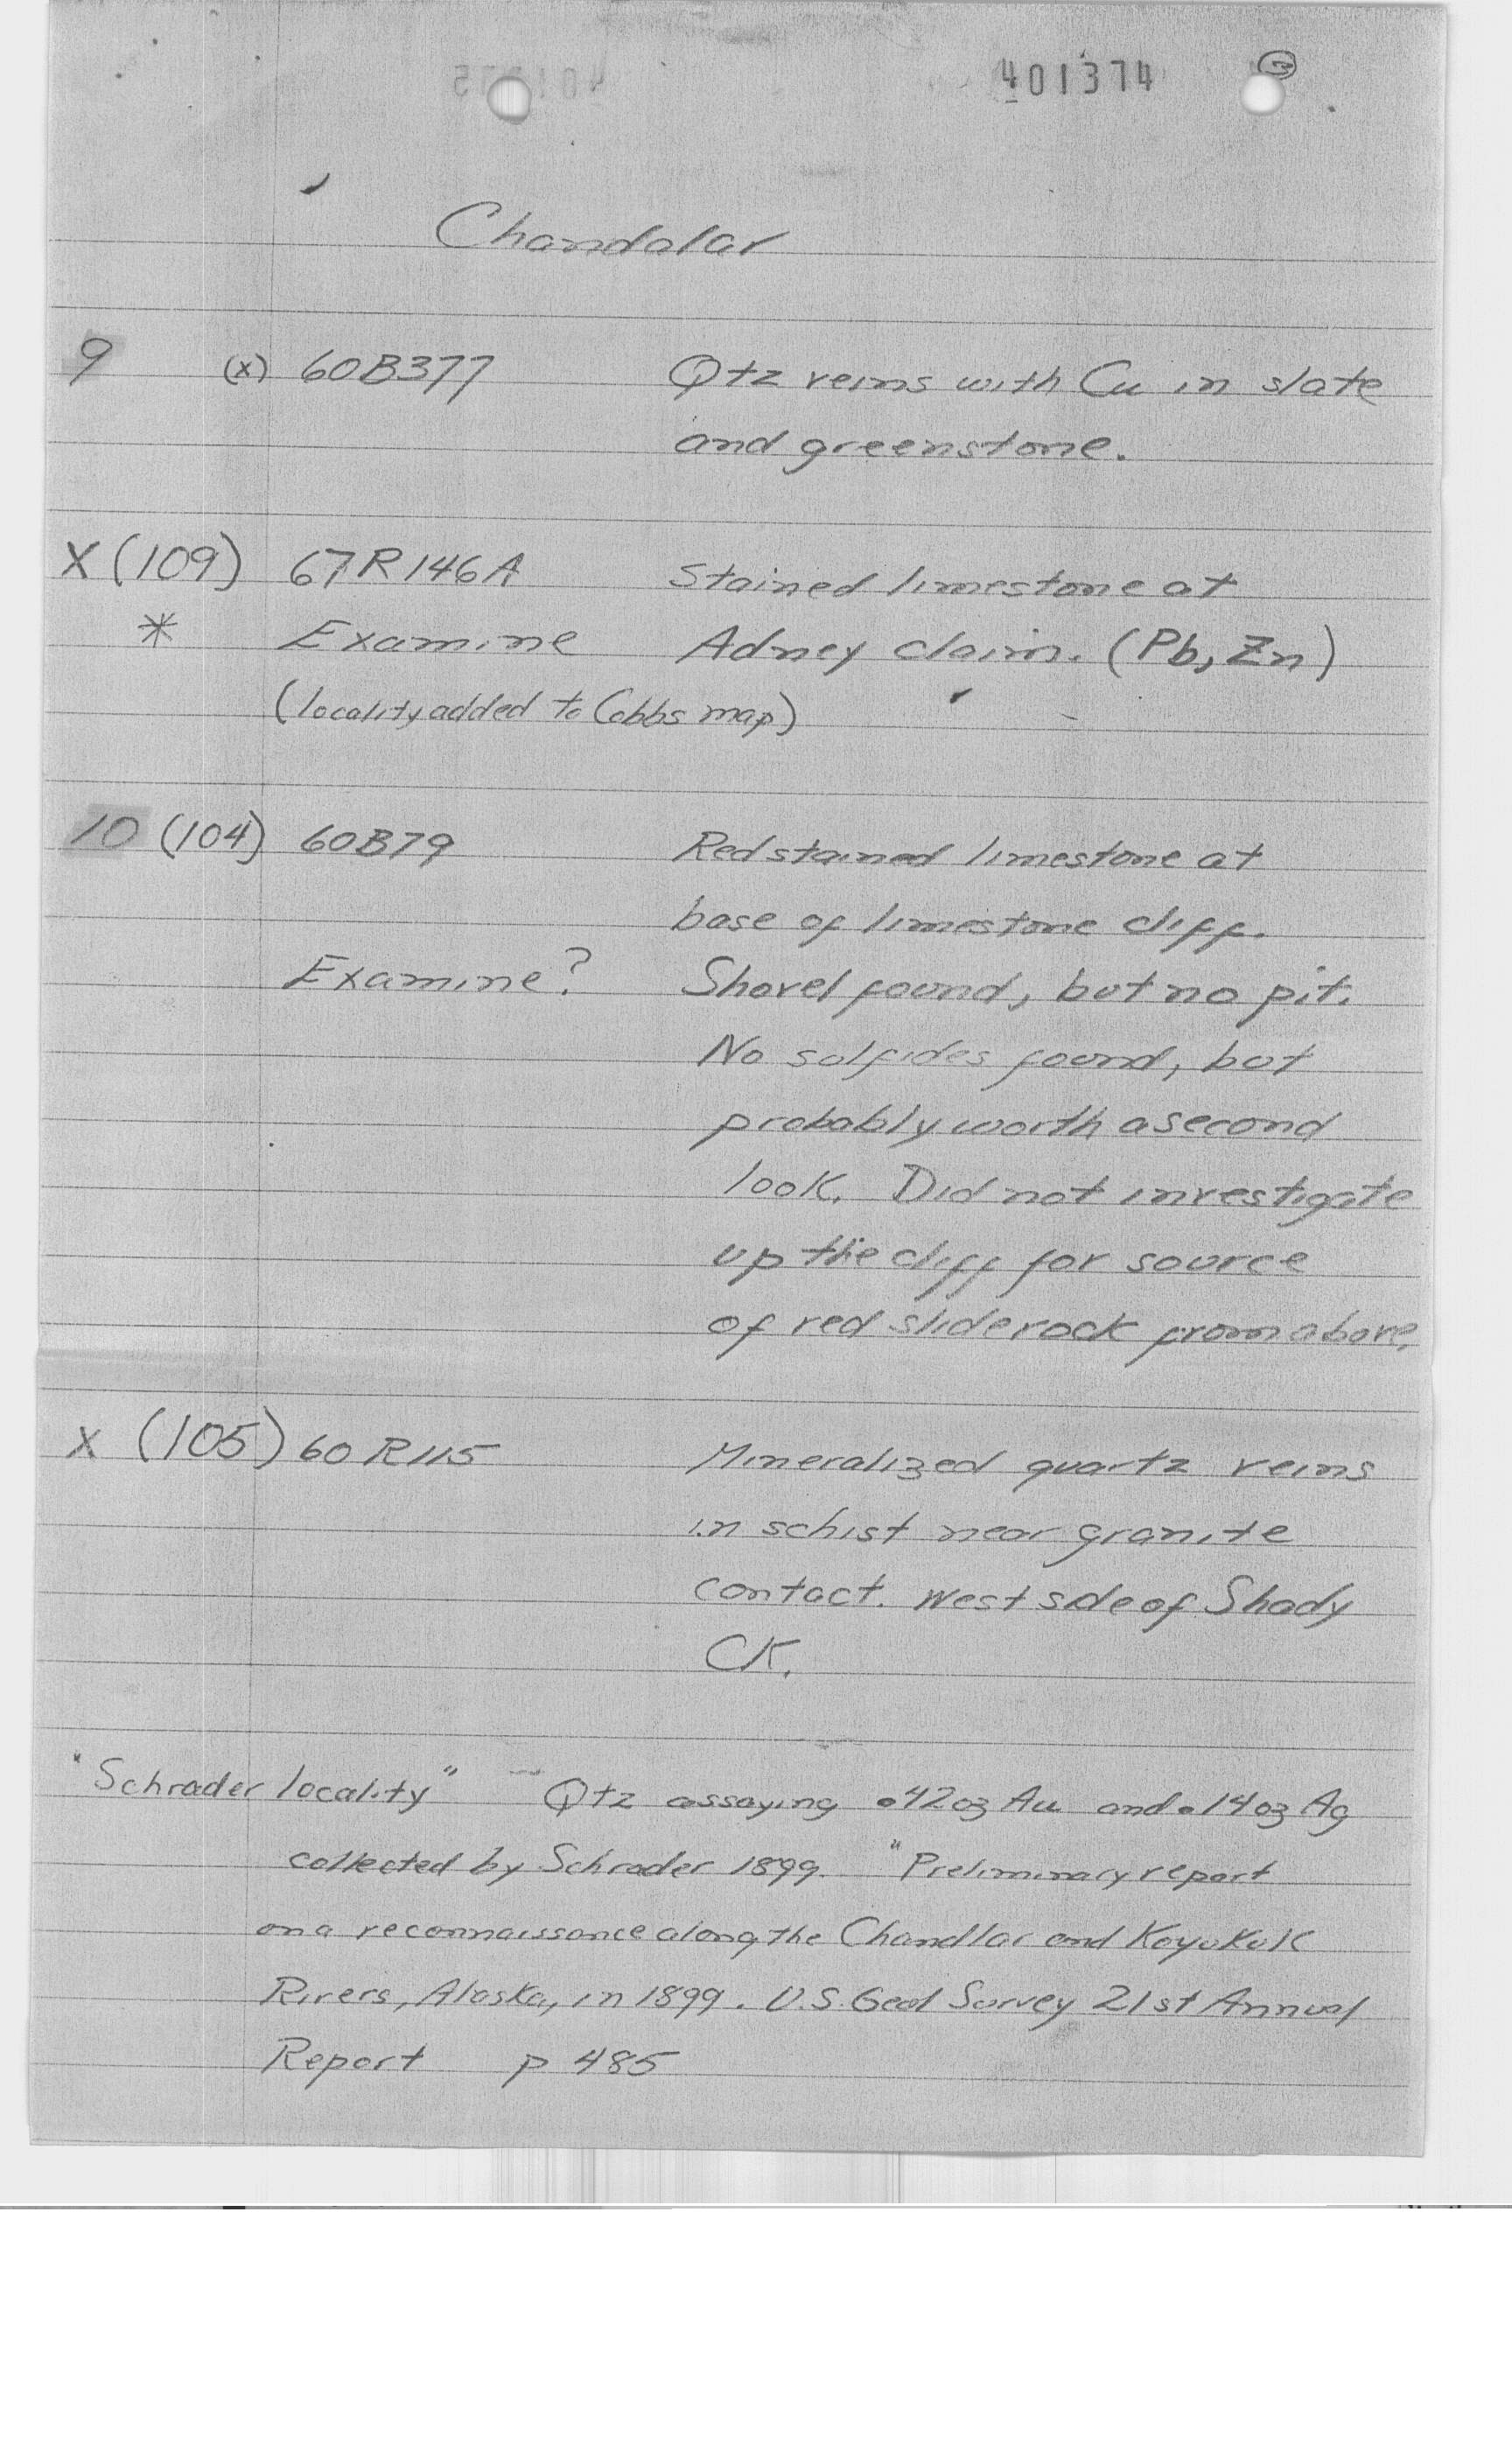 401374
Chandalar
9 (x) 60B377 Qtz veins with Cu in slate
and greenstone.
X (109) 67R146A Stained limestone at
* Examine Adney claim. (Pb, Zn)
(locality added to Cobbs map)
10 (104) 60B79 Red stained limestone at
base of limestone cliff.
Examine? Shovel found, but no pit.
No sulfides found, but
probably worth a second
look. Did not investigate
up the cliff for source
of red slide rock from above.
X (105) 60R115 Mineralized quartz veins
in schist near granite
contact. West side of Shady
CK.
"Schrader locality" Qtz assaying .42 oz Au and .14 oz Ag
collected by Schrader 1899. "Preliminary report
on a reconnaissance along the Chandlar and Koyukuk
Rivers, Alaska, in 1899. U.S. Geol Survey 21st Annual
Report p 485